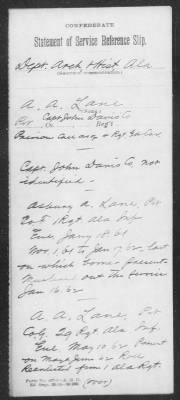 CONFEDERATE
Statement of Service Reference Slip.
Dept. Arch & Hist Ala
A. A. Lane
Pvt Capt John Davis Co
Co. Regt
Capt. John Davis Co. not
identified -
Asbury A. Lane, Pvt
Co E 1 Regt Ala Inf
Enl Jany 18 61
Nov. 1, 61 to Jany 17, 62, last
on which borne present.
Mustered out the service
Jan 16. 62
A. A. Lane, Pvt
Co G. 29 Regt Ala Inf.
Enl May 10 62 Present
on May & June 62 Roll
Reenlisted from 1 Ala Regt.
(over)